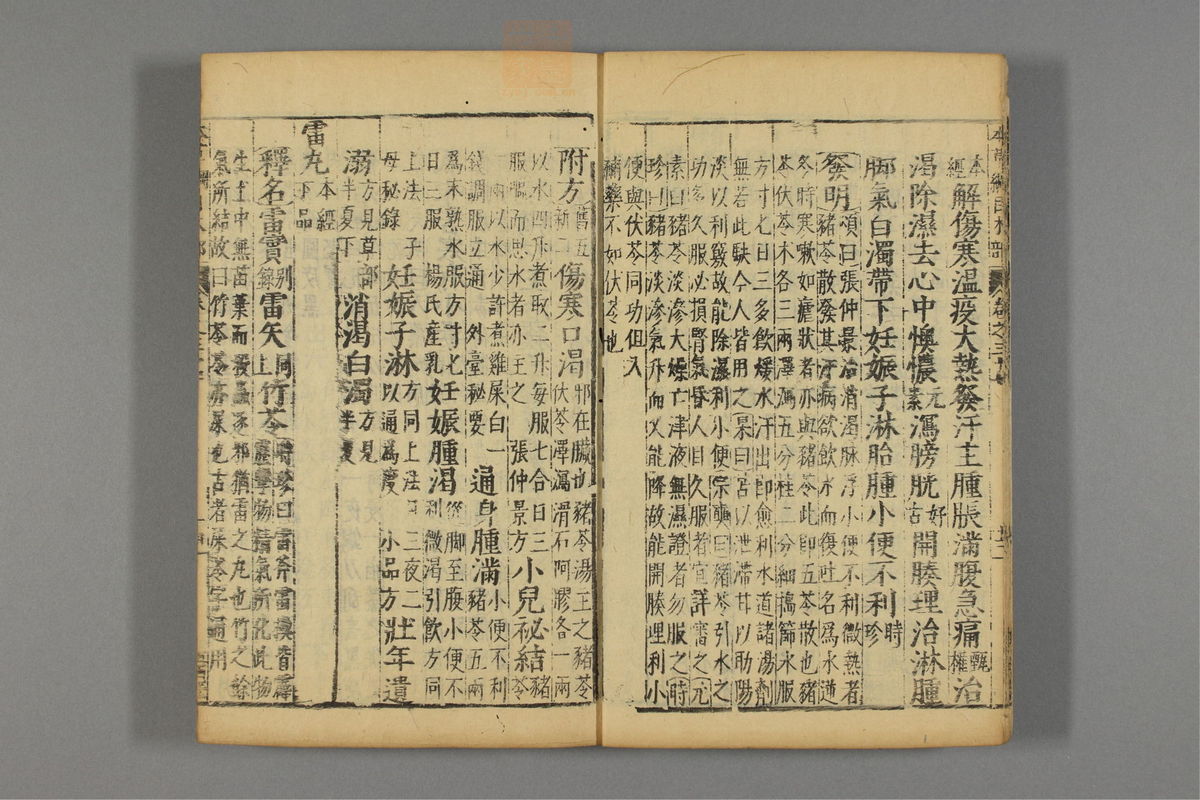 本經解傷寒溫疫大熱發汗主腫脹滿腹急痛甄權治
渴除濕去心中懊憹元素瀉膀胱好古開腠理治淋腫
脚氣白濁帶下妊娠子淋胎腫小便不利時珍
發明頌曰張仲景治消渴脉浮小便不利微熱者
豬苓散發其汗病欲飲水而復吐名為水逆
冬時寒嗽如瘧狀者亦與豬苓此即五苓散也豬
苓伏苓术各三兩澤瀉五分桂二分細搗篩水服
方寸七日三多飲煖水汗出即愈利水道諸湯劑
無若此駃今人皆用之杲曰苦以泄滯甘以助陽
淡以利竅故能除濕利小便宗奭曰豬苓引水之
功多久服必損腎氣昏人目久服者宜詳審之元
素曰豬苓淡滲大燥亡津液無濕證者勿服之時
珍曰豬苓淡滲氣升而又能降故能開腠理利小
便與伏苓同功但入
補藥不如伏苓也
附方舊五新二傷寒口渴邪在臟也豬苓湯主之豬苓
伏苓澤瀉滑石阿膠各一兩
以水四升煮取二升每服七合日三
服嘔而思水者亦主之 張仲景方小兒祕結豬苓
一兩以水少許煮雞屎白一
錢調服立通 外臺秘要 通身腫滿小便不利
豬苓五兩
為末熟水服方寸七
日三服 楊氏產乳妊娠腫渴從脚至腹小便不
利微渴引飲方同
上法 子母秘錄 妊娠子淋方同上法日三夜二
以通為度 小品方壯年遺
溺方見草部半夏下 消渴白濁方見半夏
雷丸本經下品
釋名雷實別錄雷矢同上竹苓時珍曰雷斧雷楔皆霹
靂擊物精氣所化此物
生土中無苗葉而殺蟲逐邪猶雷之丸也竹之餘
氣所結故曰竹苓苓亦屎也古者屎苓字通用